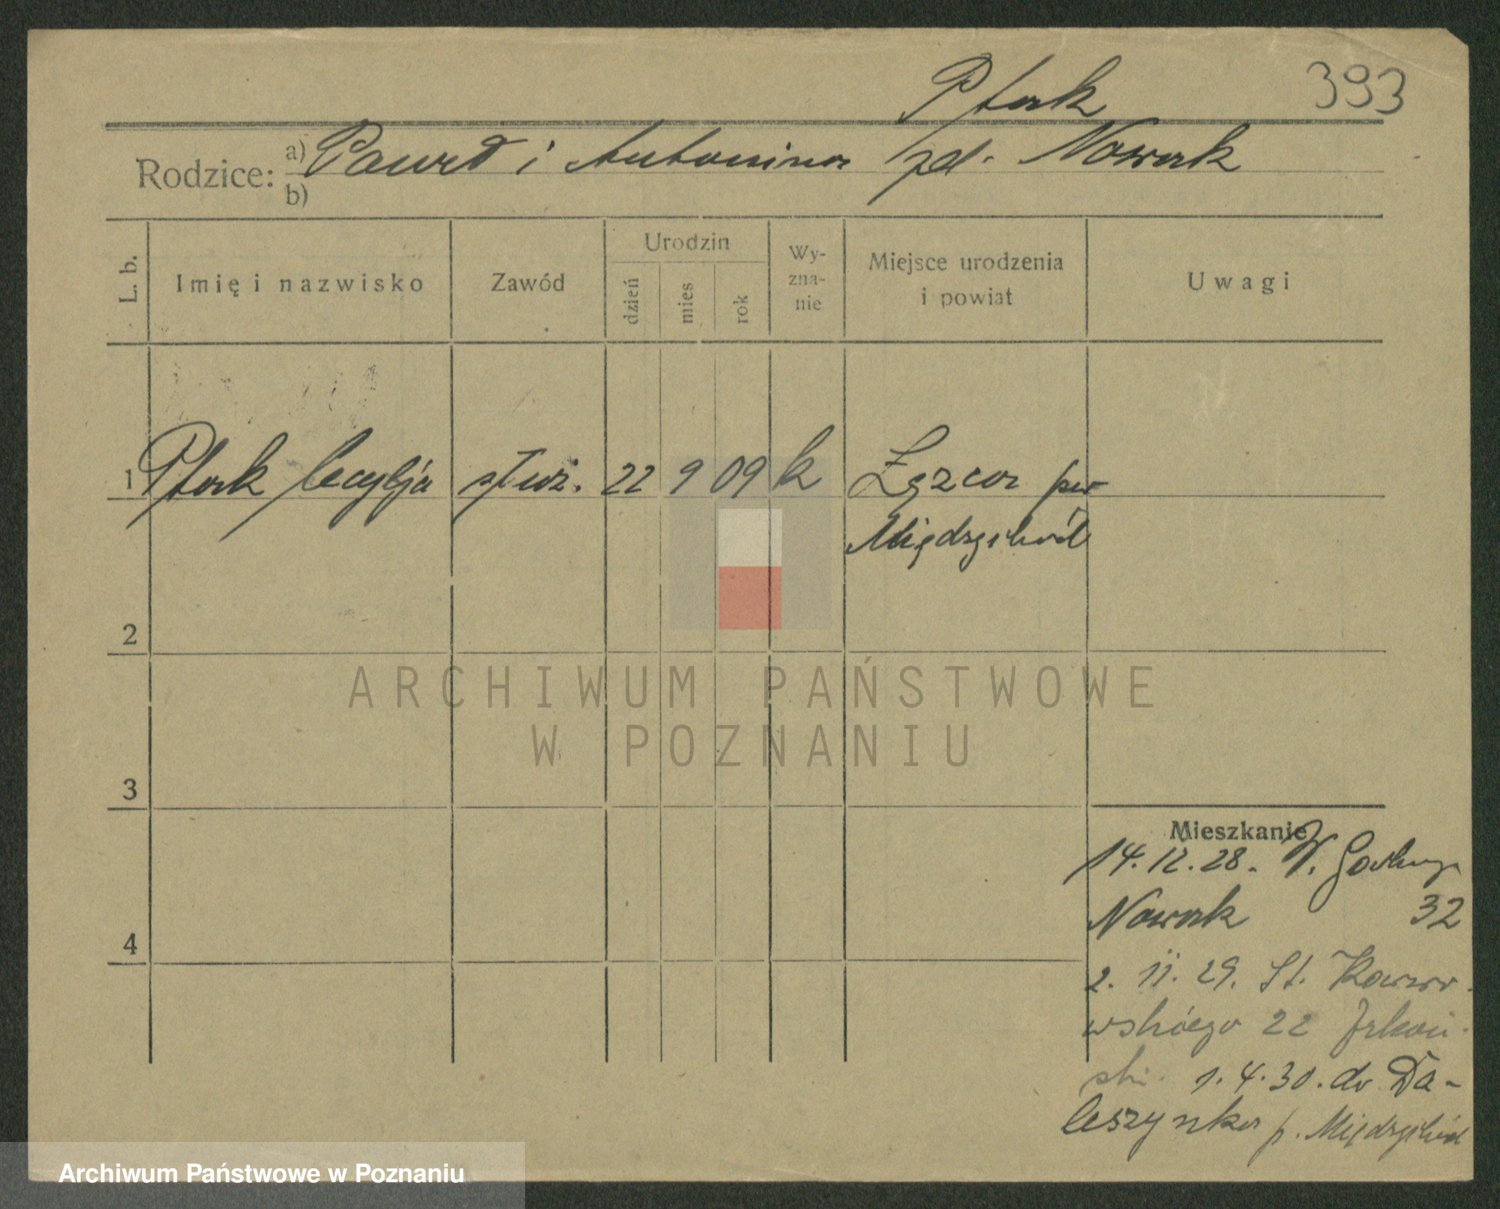 Ptak 393
Rodzice: a) Paweł i Antonina zd. Nowak
b)
L. b.
Imię i nazwisko
Zawód
Urodzin
dzień
mies
rok
Wy-
zna-
nie
Miejsce urodzenia
i powiat
Uwagi
1 Ptak Cecylja służ. 22 9 09 k pow
Międzychód
2
ARCHIWUM PAŃSTWOWE
W POZNANIU
3
4
Mieszkanie
14. 12. 28. W. Garbary
Nowak 32
2. 11. 29. St.
wskiego 22
ski. 1. 4. 30. do Da-
leszynka p. Międzychód
Archiwum Państwowe w Poznaniu